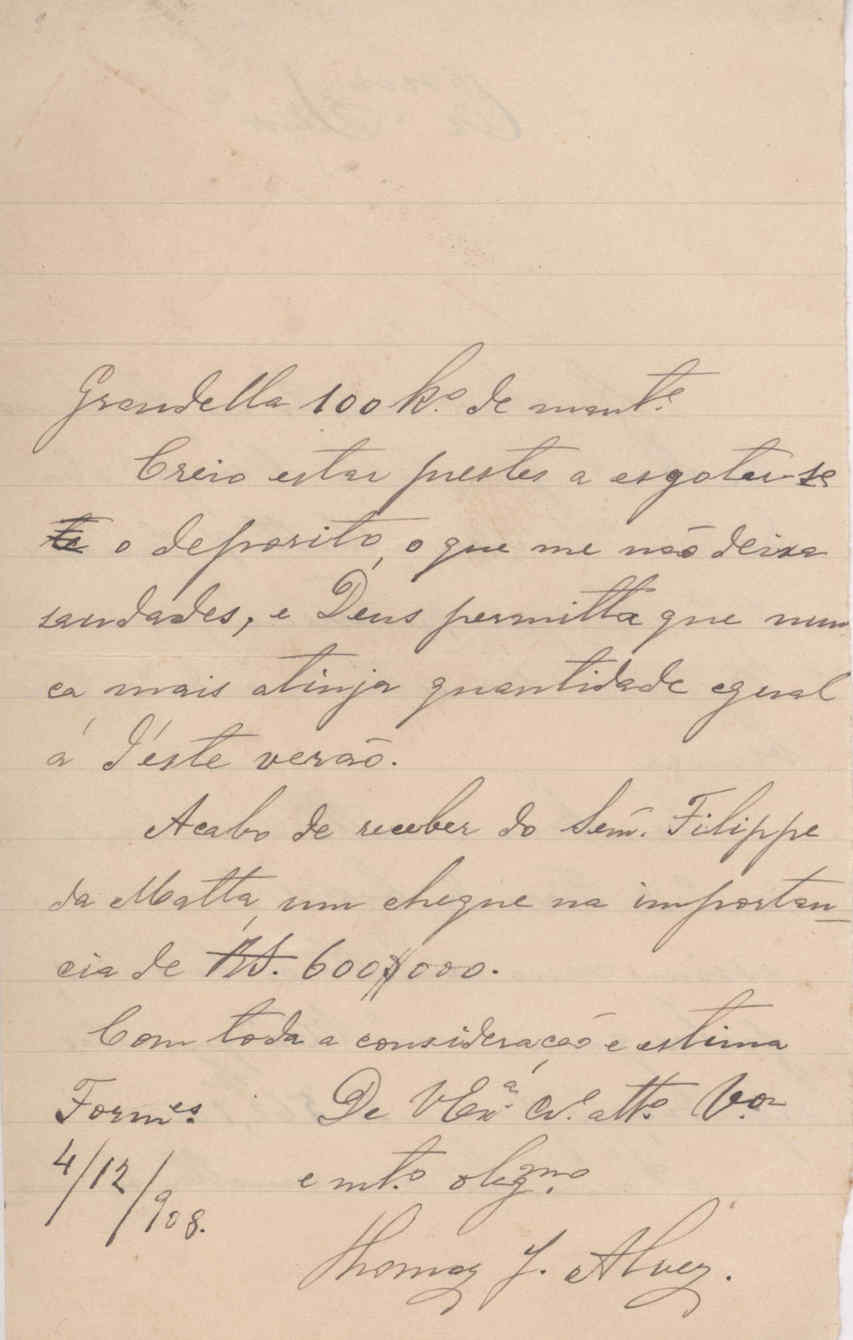 Grandella 100 k.º de mant.ª
Creio estar prestes a esgotar-se
o deposito, o que me não deixa
saudades, e Deus permitta que nun
ca mais atinja quantidade egual
á d'éste verão.
Acabo de receber do Senr. Filippe
da Matta, um cheque na importan_
cia de RS. 600$000.
Com toda a consideração e estima
Formes. De V Exª. Cr.º att.º V.or
4/12/908. e mt.º obgmo.
Thomaz J. Alvez.